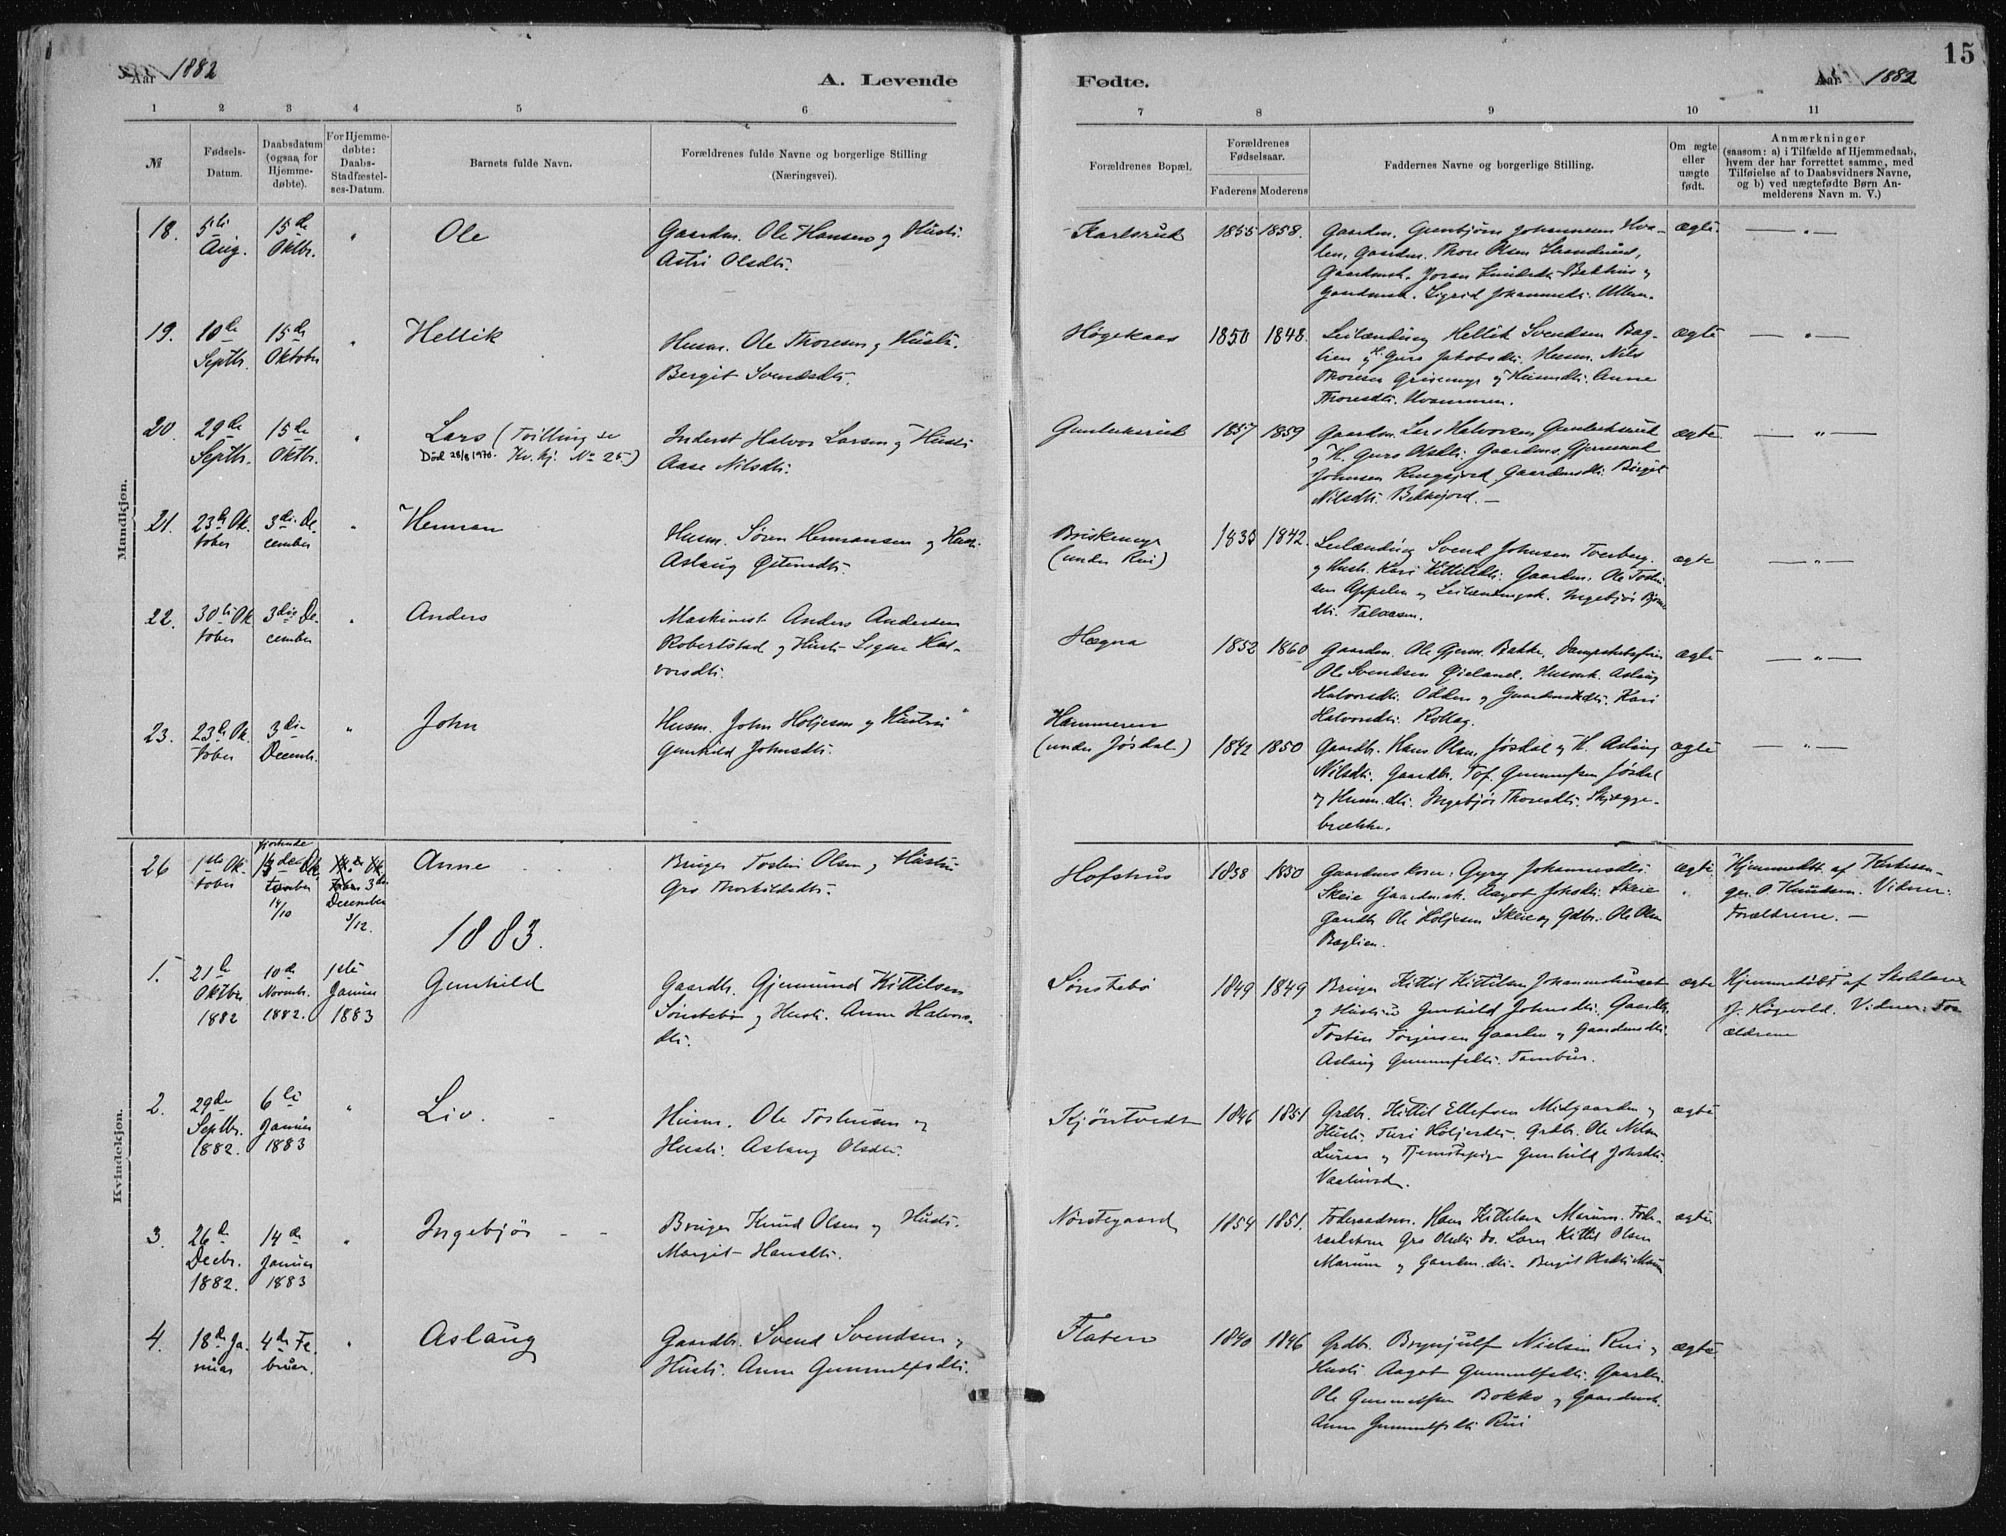 15
Aar 1882
A. Levende
Fødte.
Aar 1882
1 2 3 4 5 6 7 8 9 10 11
№
Fødsels-
Datum.
Daabsdatum
(ogsaa for
Hjemme-
døbte).
For Hjemme-
døbte:
Daabs-
Stadfæstel-
ses-Datum.
Barnets fulde Navn.
Forældrenes fulde Navne og borgerlige Stilling
(Næringsvei).
Forældrenes Bopæl.
Forældrenes
Fødselsaar.
Faderens Moderens
Faddernes Navne og borgerlige Stilling.
Om ægte
eller
uægte
født.
Anmærkninger
(saasom: a) i Tilfælde af Hjemmedaab,
hvem der har forrettet samme, med
Tilføielse af to Daabsvidners Navne,
og b) ved uægtefødte Børn An-
melderens Navn m. V.)
Mandkjøn.
18.
5te
Aug.
15de
Oktbr.
"
Ole
Gaardm. Ole Hansen og Hustr.
Astri Olsdtr.
Karlsrud
1855 1858.
Gaardm. Gunbjørn Johannesen
Gaardm. Thore Olsen
Gaardmk. Joran
Gaardmk. Sigrid
ægte
— " —
19.
10de
Septbr.
15de
Oktober
"
Hellik
Husm. Ole Thoresen og Hustr.
Bergit Svendsdtr.
Høgekaas
1850 1848.
Leilænding Hellik Svendsen Bag-
lien og H. Guro Jakobsdtr. Husm. Nils
Thoresen Grisemyr og Husmdtr. Anne
Thoresdtr. Hvammen.
ægte
— " —
20.
29de
Septbr.
15de
Oktbr.
"
Lars (Tvilling se
Død 28/8 1970. Kv. kj. No 25)
Inderst Halvor Larsen og Hustr.
Aase Nilsdtr.
Gunleksrud
1857 1859
Gaardm. Lars Halvorsen Gunleksrud
og H. Guro Olsdtr. Gaardms. Gjermund
Johnsen Gaardmdtr. Birgit
Nilsdtr. Bekkejord. —
ægte
— " —
21.
23de Ok-
tober
3die De-
cember
"
Herman
Husm. Søren Hermansen og Hustr.
Aslaug
Briskemyr
(under Rui)
1842.
Leilænding Svend Johnsen Tverberg
og Hustr. Kari Kittilsdtr. Gaardm. Ole
sen Appelen og Leilændingsk. Ingebjør
dtr. Talaasen.
ægte
— " —
22.
30te Ok-
tober
3die De-
cember
"
Anders
Maskinist Anders Andersen
Robertstad og Hustr. Signe Hal-
vorsdtr.
Hægna
1852 1860
Gaardm. Ole Gjerm. Bakke.
Ole Svendsen Øieland. Husmk. Aslaug
Halvorsdtr. Odden og Kari
Halvorsdtr. Rollag.
ægte
— " —
23.
23de Ok-
tober
3die
Decembr.
"
John
Husm. John Holjesen og Hustru
Gunhild Johnsdtr.
Hammeren
(under Jøsdal)
1842 1850
Gaardbr. Hans Olsen Jøsdal og H. Aslaug
Nilsdtr. Gaardbr. Tof. Gunnulfsen Jøsdal
og Husm.dtr. Ingebjør Thoresdtr. Skjægge-
brække.
ægte
— " —
Kvindekjøn.
26
1ste Ok-
tober
fjortende
14/10
December
3/12.
Anne
Bruger Tosten Olsen og Hustru
Gro Thorkildsdtr.
Hofshus
1838 1850
Gaardmkone: Gyro Johannesdtr.
Skeie Gaardmk. Aagot Johsdtr. Skeie
Gaardbr. Ole Holjesen Skeie og Gdbr. Ole Olsen
Baglien.
ægte
"
Hjemmedbt. af Kirkesan-
ger O. Knudsen. Vidner:
Forældrene. —
1883.
1.
21de
Oktbr
1882
10de
Novmbr.
1882.
1ste
Januar
1883
Gunhild
Gaardbr. Gjermund Kittilsen
Sønstebø og Hustr. Anne Halvors-
dtr.
Sønstebø
1849 1849
Bruger Kittil Kittilsen Johanneshuset
og Hustru Gunhild Johnsdtr. Gaardbr.
Tosten Torjersen Gaarden og Gaardmdtr.
Aslaug Gunnulfsdtr. Tambur.
ægte
Hjemmedøbt af Skolelærer
J. Kogvold. Vidner: For-
ældrene
2.
29de
Septbr.
1882.
6te
Januar
1883
"
Liv.
Husm. Ole Tostensen og
Hustr. Aslaug Olsdtr.
Kjøntvedt
1846 1851
Grdbr. Kittil Ellefsen Midgaarden og
Hustr. Turi Holjesdtr. Grdbr. Ole Nilsen
og Tjenestepige Gunhild Johsdtr.
ægte
3.
26de
Decbr.
1882.
14de
Januar
1883
"
Ingebjør
Bruger Knud Olsen og Hustr.
Margit Hansdtr.
Nørstegaard
1854 1851.
Føderaadsm. Hans Kittilsen Marum.
Gro Olsdtr. do. Kittil Olsen
Marum og Gaardm.dtr. Bergit Olsdtr. Marum
ægte
4.
18de Ja-
nuar
4de Fe-
bruar.
"
Aslaug
Gaardbr. Svend Svendsen og
Hustr. Anne Gunnulfsdtr.
Flaten
1840 1846
Grdbr. Brynjulf Nielsen Rui og
Hustr. Aagot Gunnulfsdtr. Gaardbr.
Ole Gunnulfsen Bokko og Gaardmk.
Anne Gunnulfsdtr. Rui
ægte